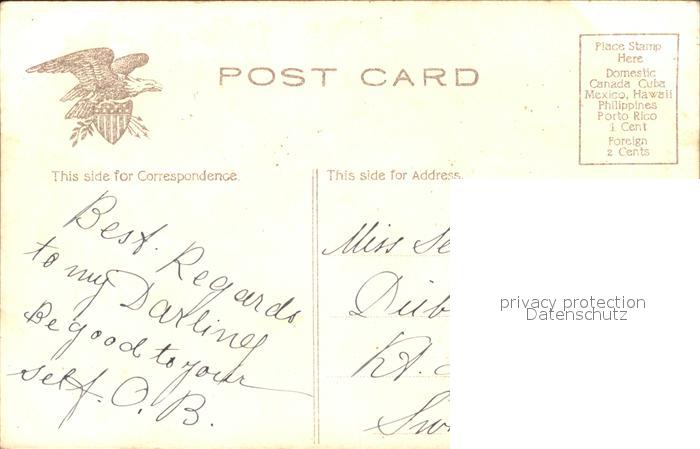 POST CARD
Place Stamp
Here
Domestic
Canada Cuba
Mexico, Hawaii
Philippines
Porto Rico
1 Cent
Foreign
2 Cents
This side for Correspondence.
This side for Address.
Best. Regards
to my Darling
Be good to your
self. O. B.
Miss Se
Dub
Rt.
Sw
privacy protection
Datenschutz